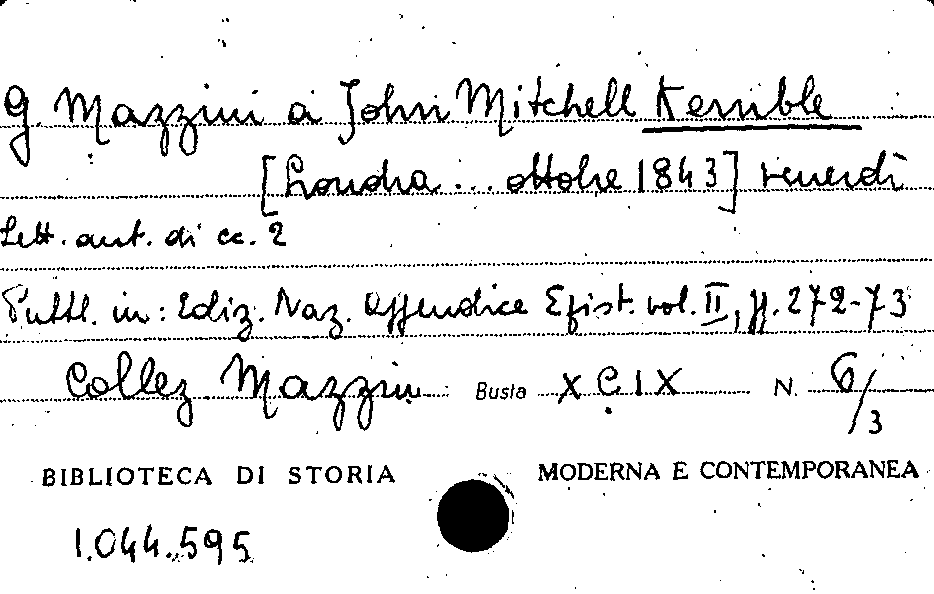 G. Mazzini a John Mitchell Kemble
[Londra ... ottobre 1843] venerdì
Lett. aut. di cc. 2
Pubbl. in: Ediz. Naz. Appendice Epist. vol. II, pp. 272-73
Collez Mazzini Busta XCIX N. 6/3
BIBLIOTECA DI STORIA MODERNA E CONTEMPORANEA
1.044.595